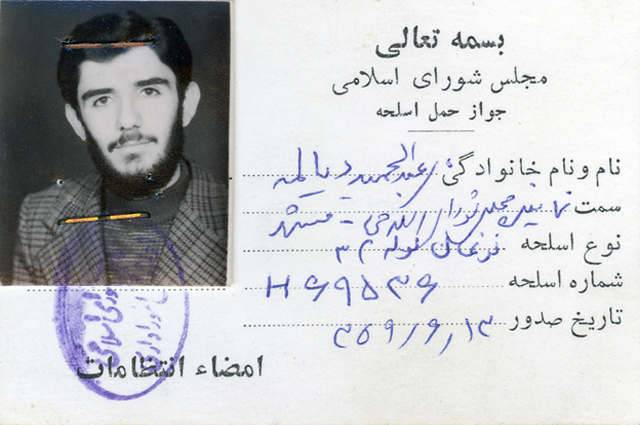 بسمه تعالی
مجلس شورای اسلامی
جواز حمل اسلحه
نام و نام خانوادگی: عبدالحمید دیالمه
سمت نماینده مجلس شورای اسلامی - مشهد
نوع اسلحه لوله
شماره اسلحه H۶۹۵۳۶
تاریخ صدور ۳۵۹/۶/۱۳
امضاء انتظامات